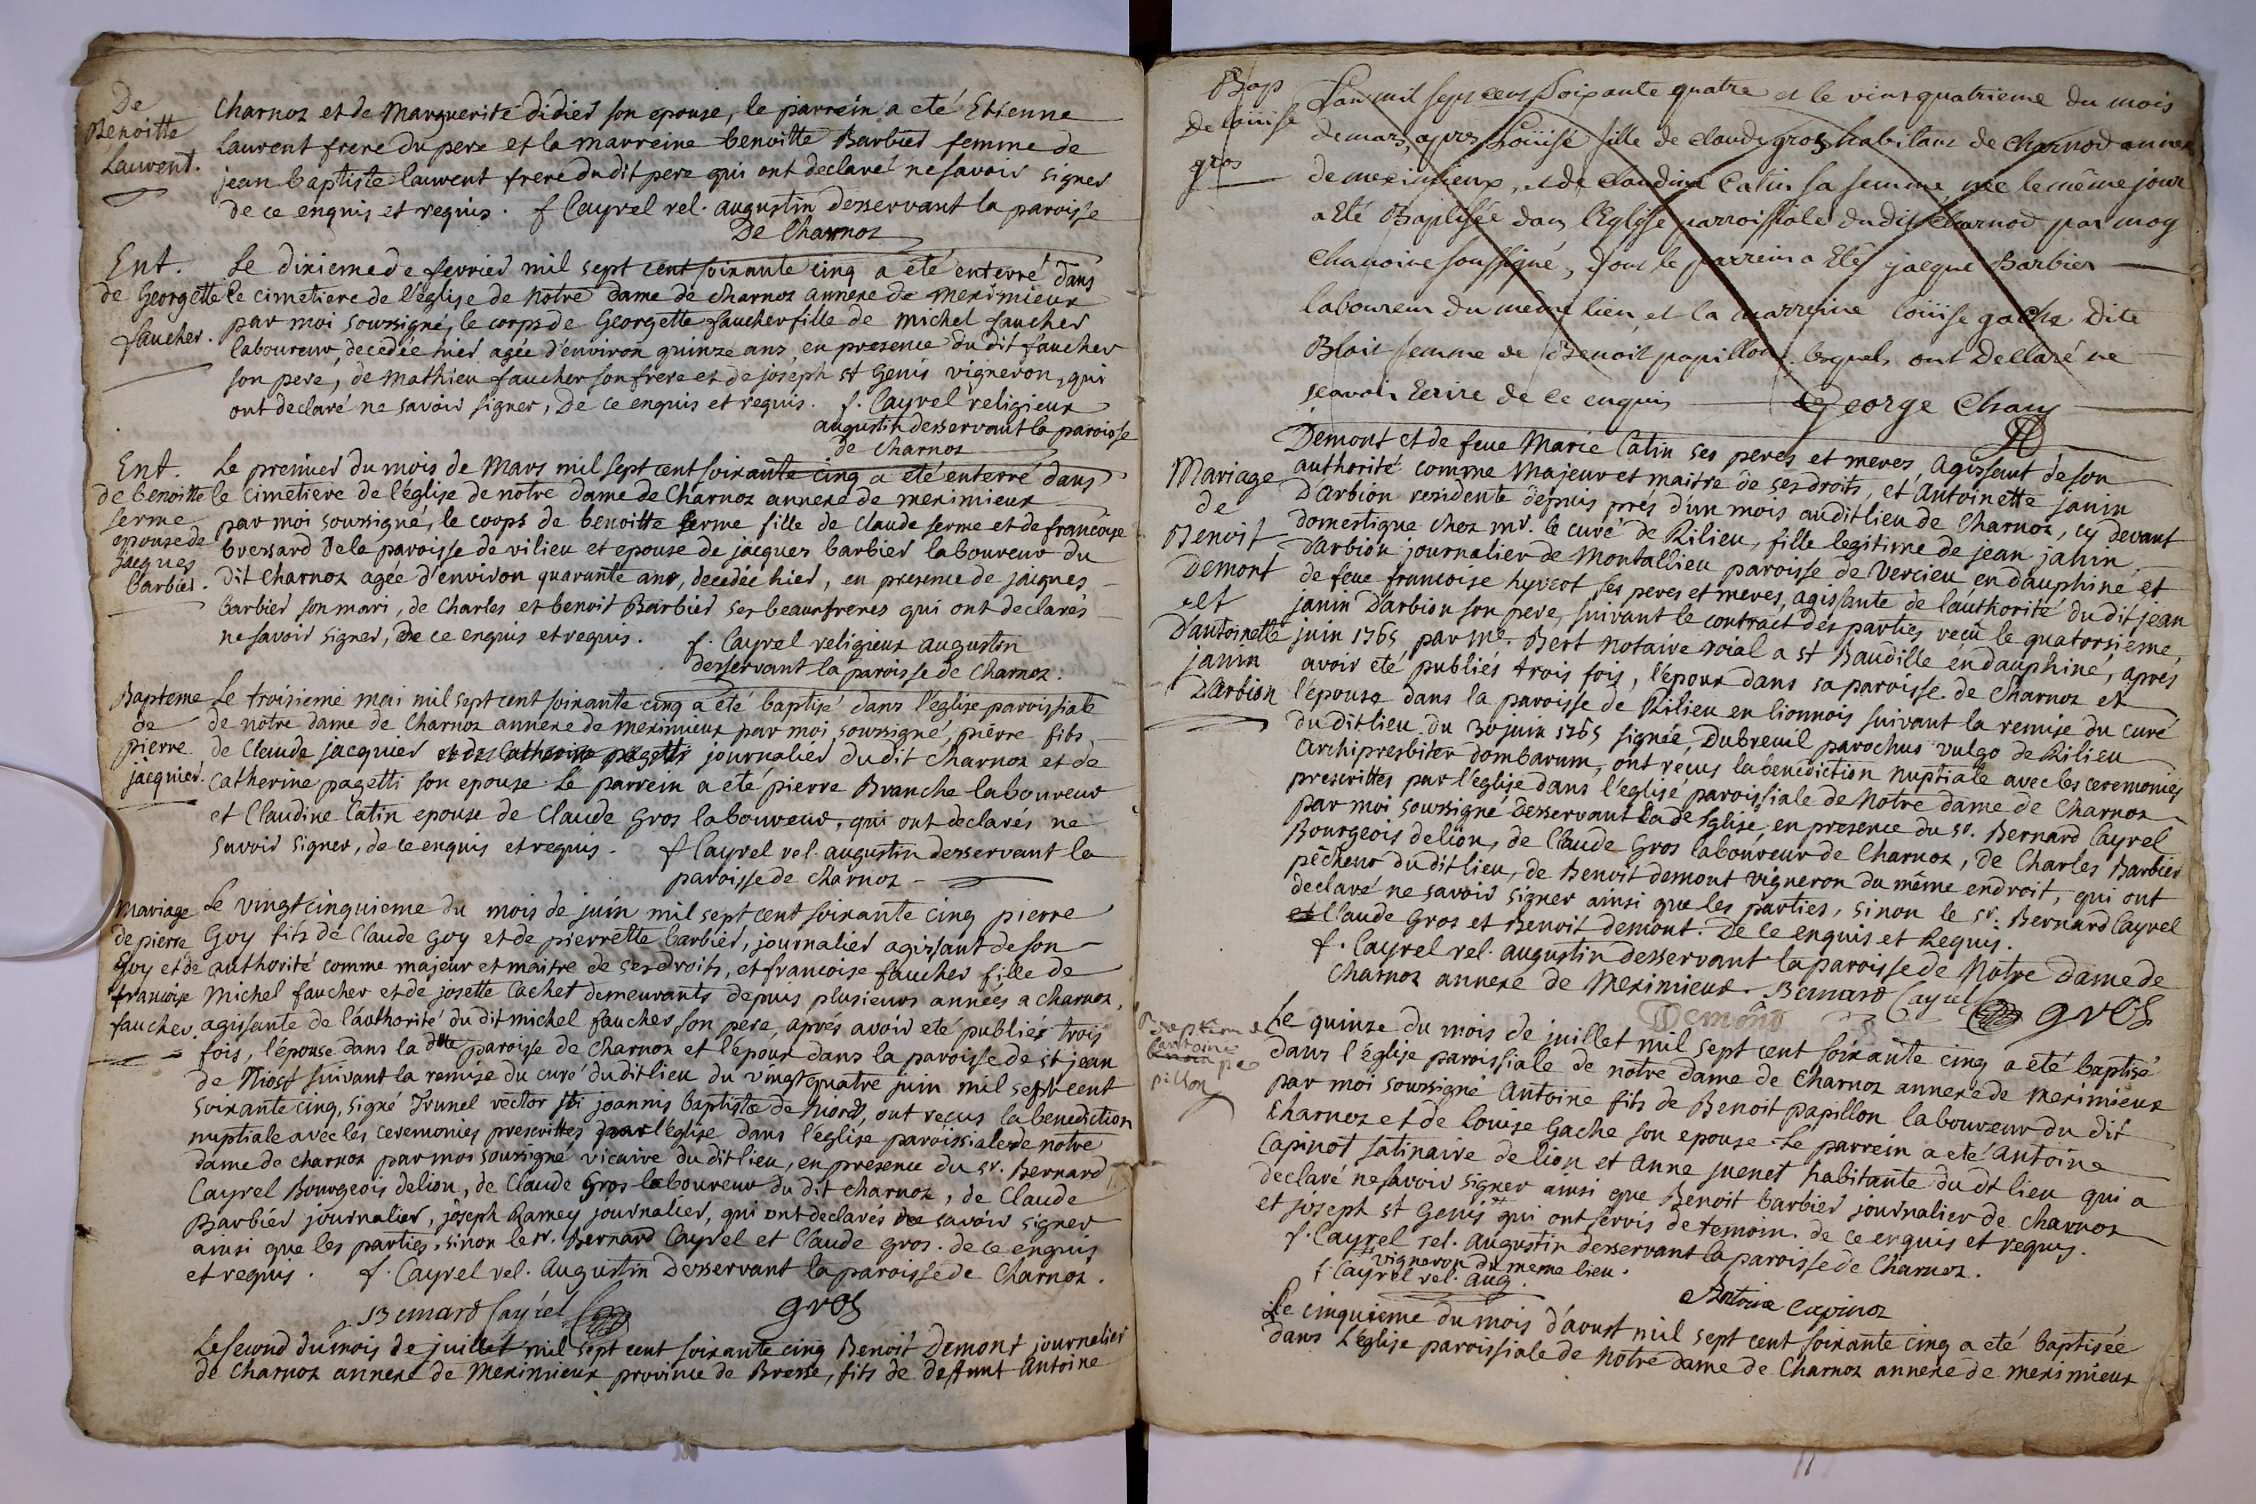 De
Benoitte
Laurent.
Charnoz et de Marguerite didier son epouse, le parrein a eté Etienne
Laurent frere du pere et la marreine benoitte Barbier femme de
jean baptiste laurent frere du dit pere qui ont declaré ne savoir signer
de ce enquis et requis. f Cayrel rel. augustin desservant la paroisse
De Charnoz
Ent.
de Georgette
faucher.
Le dixieme de fevrier mil sept cent soixante cinq a eté enterré dans
le cimetiere de l'église de Notre dame de charnoz annexe de meximieux
par moi soussigné, le corps de Georgette faucher fille de michel faucher
laboureur, decedée hier agée d'environ quinze ans, en presence du dit faucher
son pere, de Mathieu faucher son frere et de joseph st Genis vigneron, qui
ont declaré ne savoir signer, De ce enquis et requis. f. Cayrel religieux
augustin desservant la paroisse
de Charnoz
Ent.
de benoitte
serme
epouse de
jacques
barbier.
Le premier du mois de Mars mil sept cent soixante cinq a eté enterré dans
le cimetiere de l'église de notre dame de Charnoz annexe de meximieux
par moi soussigné, le corps de benoitte serme fille de Claude serme et de francoise
bressard de la paroisse de vilieu et epouse de jacques barbier laboureur du
dit Charnoz agée d'environ quarante ans, decedée hier, en presence de jacques
barbier son mari, de Charles et benoit Barbier ses beaux freres qui ont declarés
ne savoir signer, De ce enquis et requis. f. Cayrel religieux augustin
desservant la paroisse de Charnoz.
Bapteme
de
pierre
jacquier.
Le troisieme mai mil sept cent soixante cinq a été baptisé dans l'église paroissiale
de notre dame de Charnoz annexe de meximieux par moi soussigné, pierre fils
de Claude jacquier et de Catherine pagetti journalier du dit Charnoz et de
Catherine pagetti son epouse. Le parrein a eté pierre Branche laboureur
et Claudine Catin epouse de Claude Gros laboureur, qui ont declarés ne
savoir signer, de ce enquis et requis. f Cayrel rel. augustin desservant la
paroisse de Charnoz
Mariage
de pierre
Goy et de
francoise
faucher.
Le vingt cinquieme du mois de juin mil sept cent soixante cinq pierre
Goy fils de Claude Goy et de pierrette barbier, journalier agissant de son
authorité comme majeur et maitre de ses droits, et francoise faucher fille de
Michel faucher et de josette Cachet demeurants depuis plusieurs années a charnoz,
agissante de l'authorité du dit michel faucher son pere, aprés avoir eté publiés trois
fois, l'épouse dans la dte paroisse de Charnoz et l'époux dans la paroisse de st jean
de Niost suivant la remise du curé du dit lieu du vingt quatre juin mil sept cent
soixante cinq, signé Trunel rector sti joannis baptistæ de niost, ont reçus la benediction
nuptiale avec les ceremonies prescrittes par l'église dans l'église paroissiale de notre
dame de charnoz par moi soussigné vicaire du dit lieu, en presence du sr. Bernard
Cayrel Bourgeois de lion, de Claude Gros laboureur du dit charnoz, de Claude
Barbier journalier, joseph Ramey journalier, qui ont declarés ne savoir signer
ainsi que les parties, sinon le sr. Bernard Cayrel et Claude gros. de ce enquis
et requis. f. Cayrel rel. Augustin Desservant la paroisse de Charnoz.
Bernard Cayrel gros
Le second du mois de juillet mil sept cent soixante cinq Benoit Demont journalier
de Charnoz annexe de Meximieux province de Bresse, fils de deffunt Antoine
Bap
de Loüise
gros
L'an mil sept cens soixante quatre et le vint quatrieme du mois
de mars, apres Loüise fille de claude gros habitans de charnod annex
de meximieux, et de Claudine Catin sa femme, née le même jour
a Eté Baptisée dans l'Eglise parroissiale du dit Charnod par moy
chanoine soussigné, dont le parrein a Eté jacque Barbier
laboureur du même lieu, et la marreine loüise gache dite
Blait femme de Benoit papillon, lesquels ont Declaré ne
scavoir Ecrire de ce enquis George Chany
Mariage
de
Benoit
Demont
et
d'antoinette
janin
D'arbion
Demont et de feue Marie Catin ses peres et meres, agissant de son
authorité comme Majeur et maitre de ses droits, et Antoinette janin
D'arbion residente depuis prés d'un mois au dit lieu de Charnoz, cy devant
domestique chez mr. le curé de Rilieu, fille legitime de jean janin
D'arbion journalier de Montallieu paroisse de Vercieu en dauphiné et
de feue francoise hyvrot ses peres et meres, agissante de l'authorité du dit jean
janin D'arbion son pere, suivant le contract des parties reçû le quatorsieme
juin 1765 par me. Bert notaire roial a st Baudille en dauphiné, aprés
avoir eté publiés trois fois, l'époux dans sa paroisse de Charnoz et
l'épouse dans la paroisse de Rilieu en lionnois suivant la remise du curé
du dit lieu du 30 juin 1765 signée, Dubreuil parochus vulgo de Rilieu
archipresbiter dombarum, ont reçus la benediction nuptiale avec les ceremonies
prescrittes par l'église dans l'église paroissiale de Notre dame de Charnoz
par moi soussigné desservant la de Eglise, en presence du sr. Bernard Cayrel
Bourgeois de lion, de Claude Gros laboureur de Charnoz, de Charles Barbier
pêcheur du dit lieu, de Benoit demont vigneron du même endroit, qui ont
declaré ne savoir signer ainsi que les parties, sinon le sr. Bernard Cayrel
et Claude Gros et Benoit demont. De ce enquis et Requis.
f. Cayrel rel. augustin desservant la paroisse de Notre Dame de
Charnoz annexe de Meximieux. Bernard Cayrel gros
Demond
Baptême d
antoine
benoin pa
pillon
Le quinze du mois de juillet mil sept cent soixante cinq a eté baptisé
dans l'église paroissiale de notre dame de Charnoz annexe de Meximieux
par moi soussigné Antoine fils de Benoit papillon laboureur du dit
Charnoz et de Louise Gache son epouse. Le parrein a eté Antoine
Capinot satinaire de lion et Anne juenet habitante du dt lieu qui a
declaré ne savoir signer ainsi que Benoit barbier journalier de charnoz
et joseph st Genis + qui ont servis de temoin. de ce enquis et requis.
f. Cayrel rel. Augustin desservant la paroisse de Charnoz.
+ vigneron du meme lieu.
f. Cayrel rel. aug.
Antoine Capinoz
Le cinquieme du mois d'aoust mil sept cent soixante cinq a eté baptisée
dans L'église paroissiale de Notre dame de Charnoz annexe de meximieux